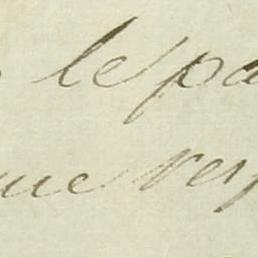 le pa
ue resp